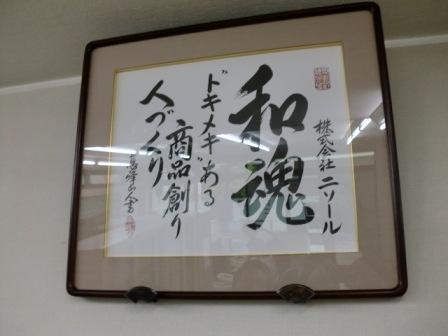 株式会社ニソール
和魂
"ドキメキ"ある
商品創り
人づくり